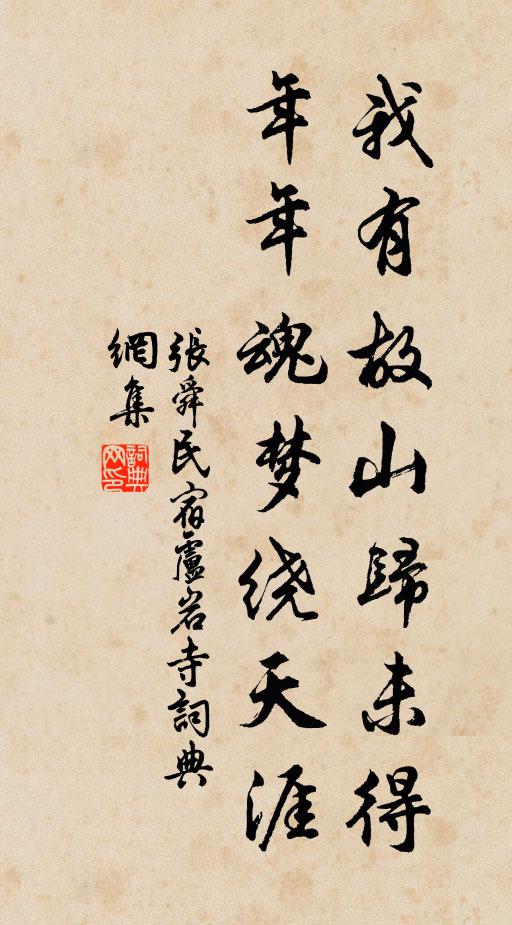 我有故山歸未得
年年魂梦绕天涯
張舜民宿盧岩寺詞典
網集
詞典
网印